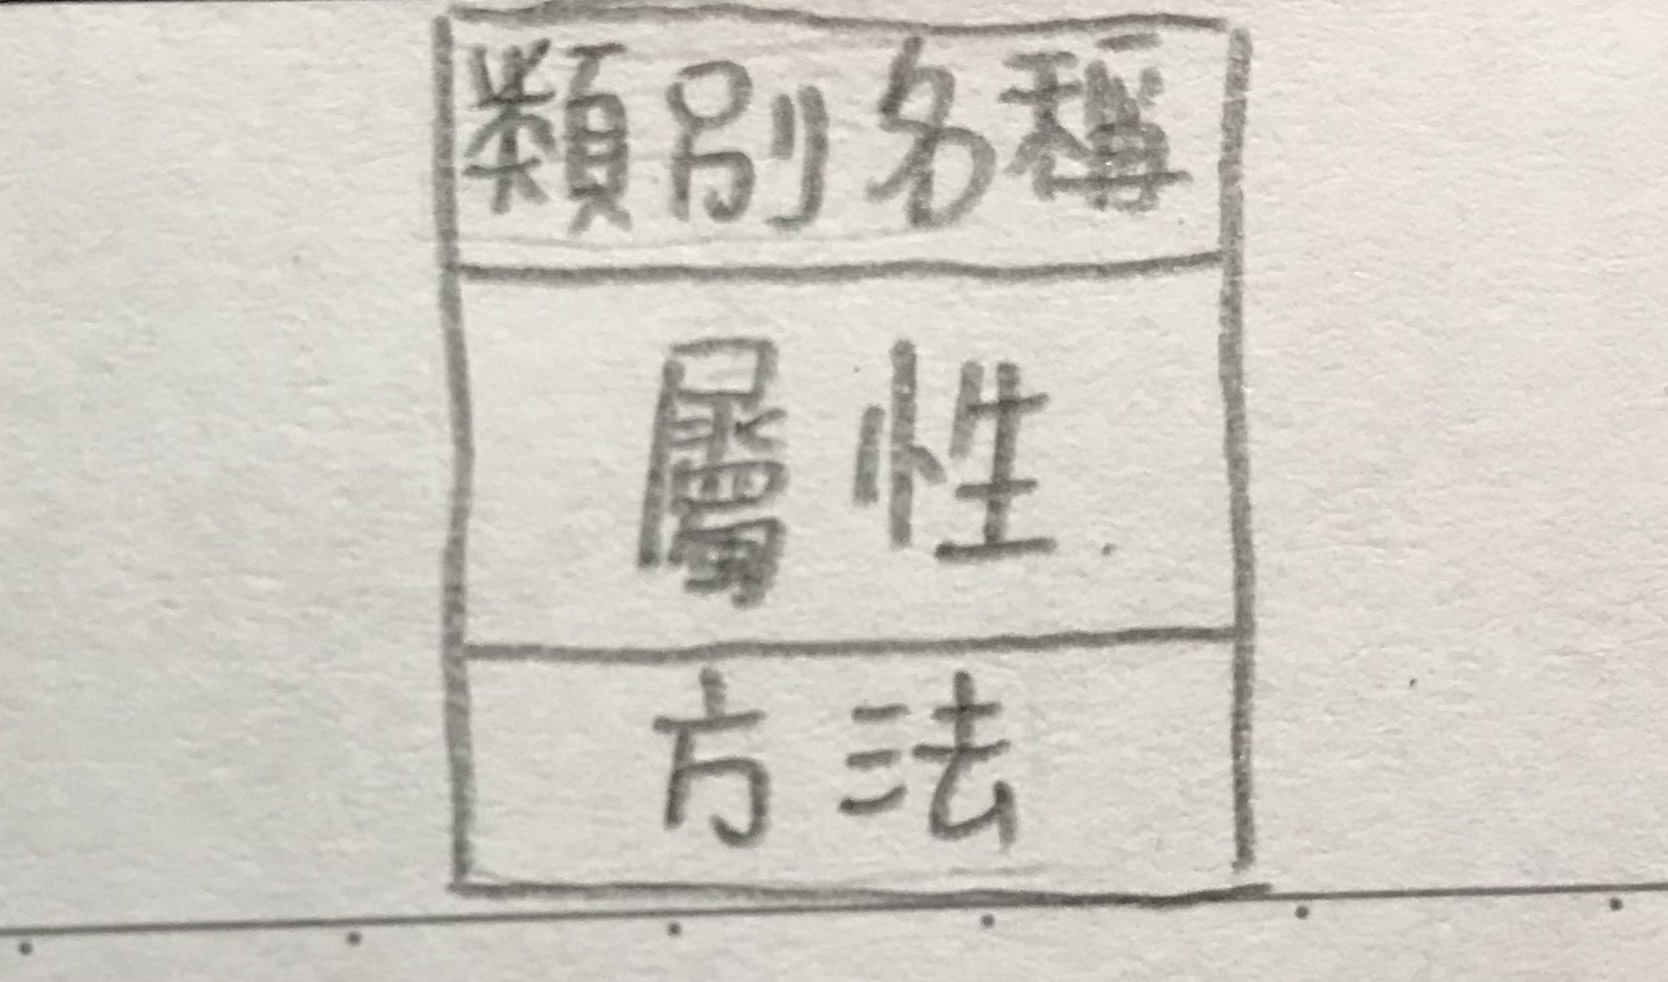 類別名稱
屬性
方法